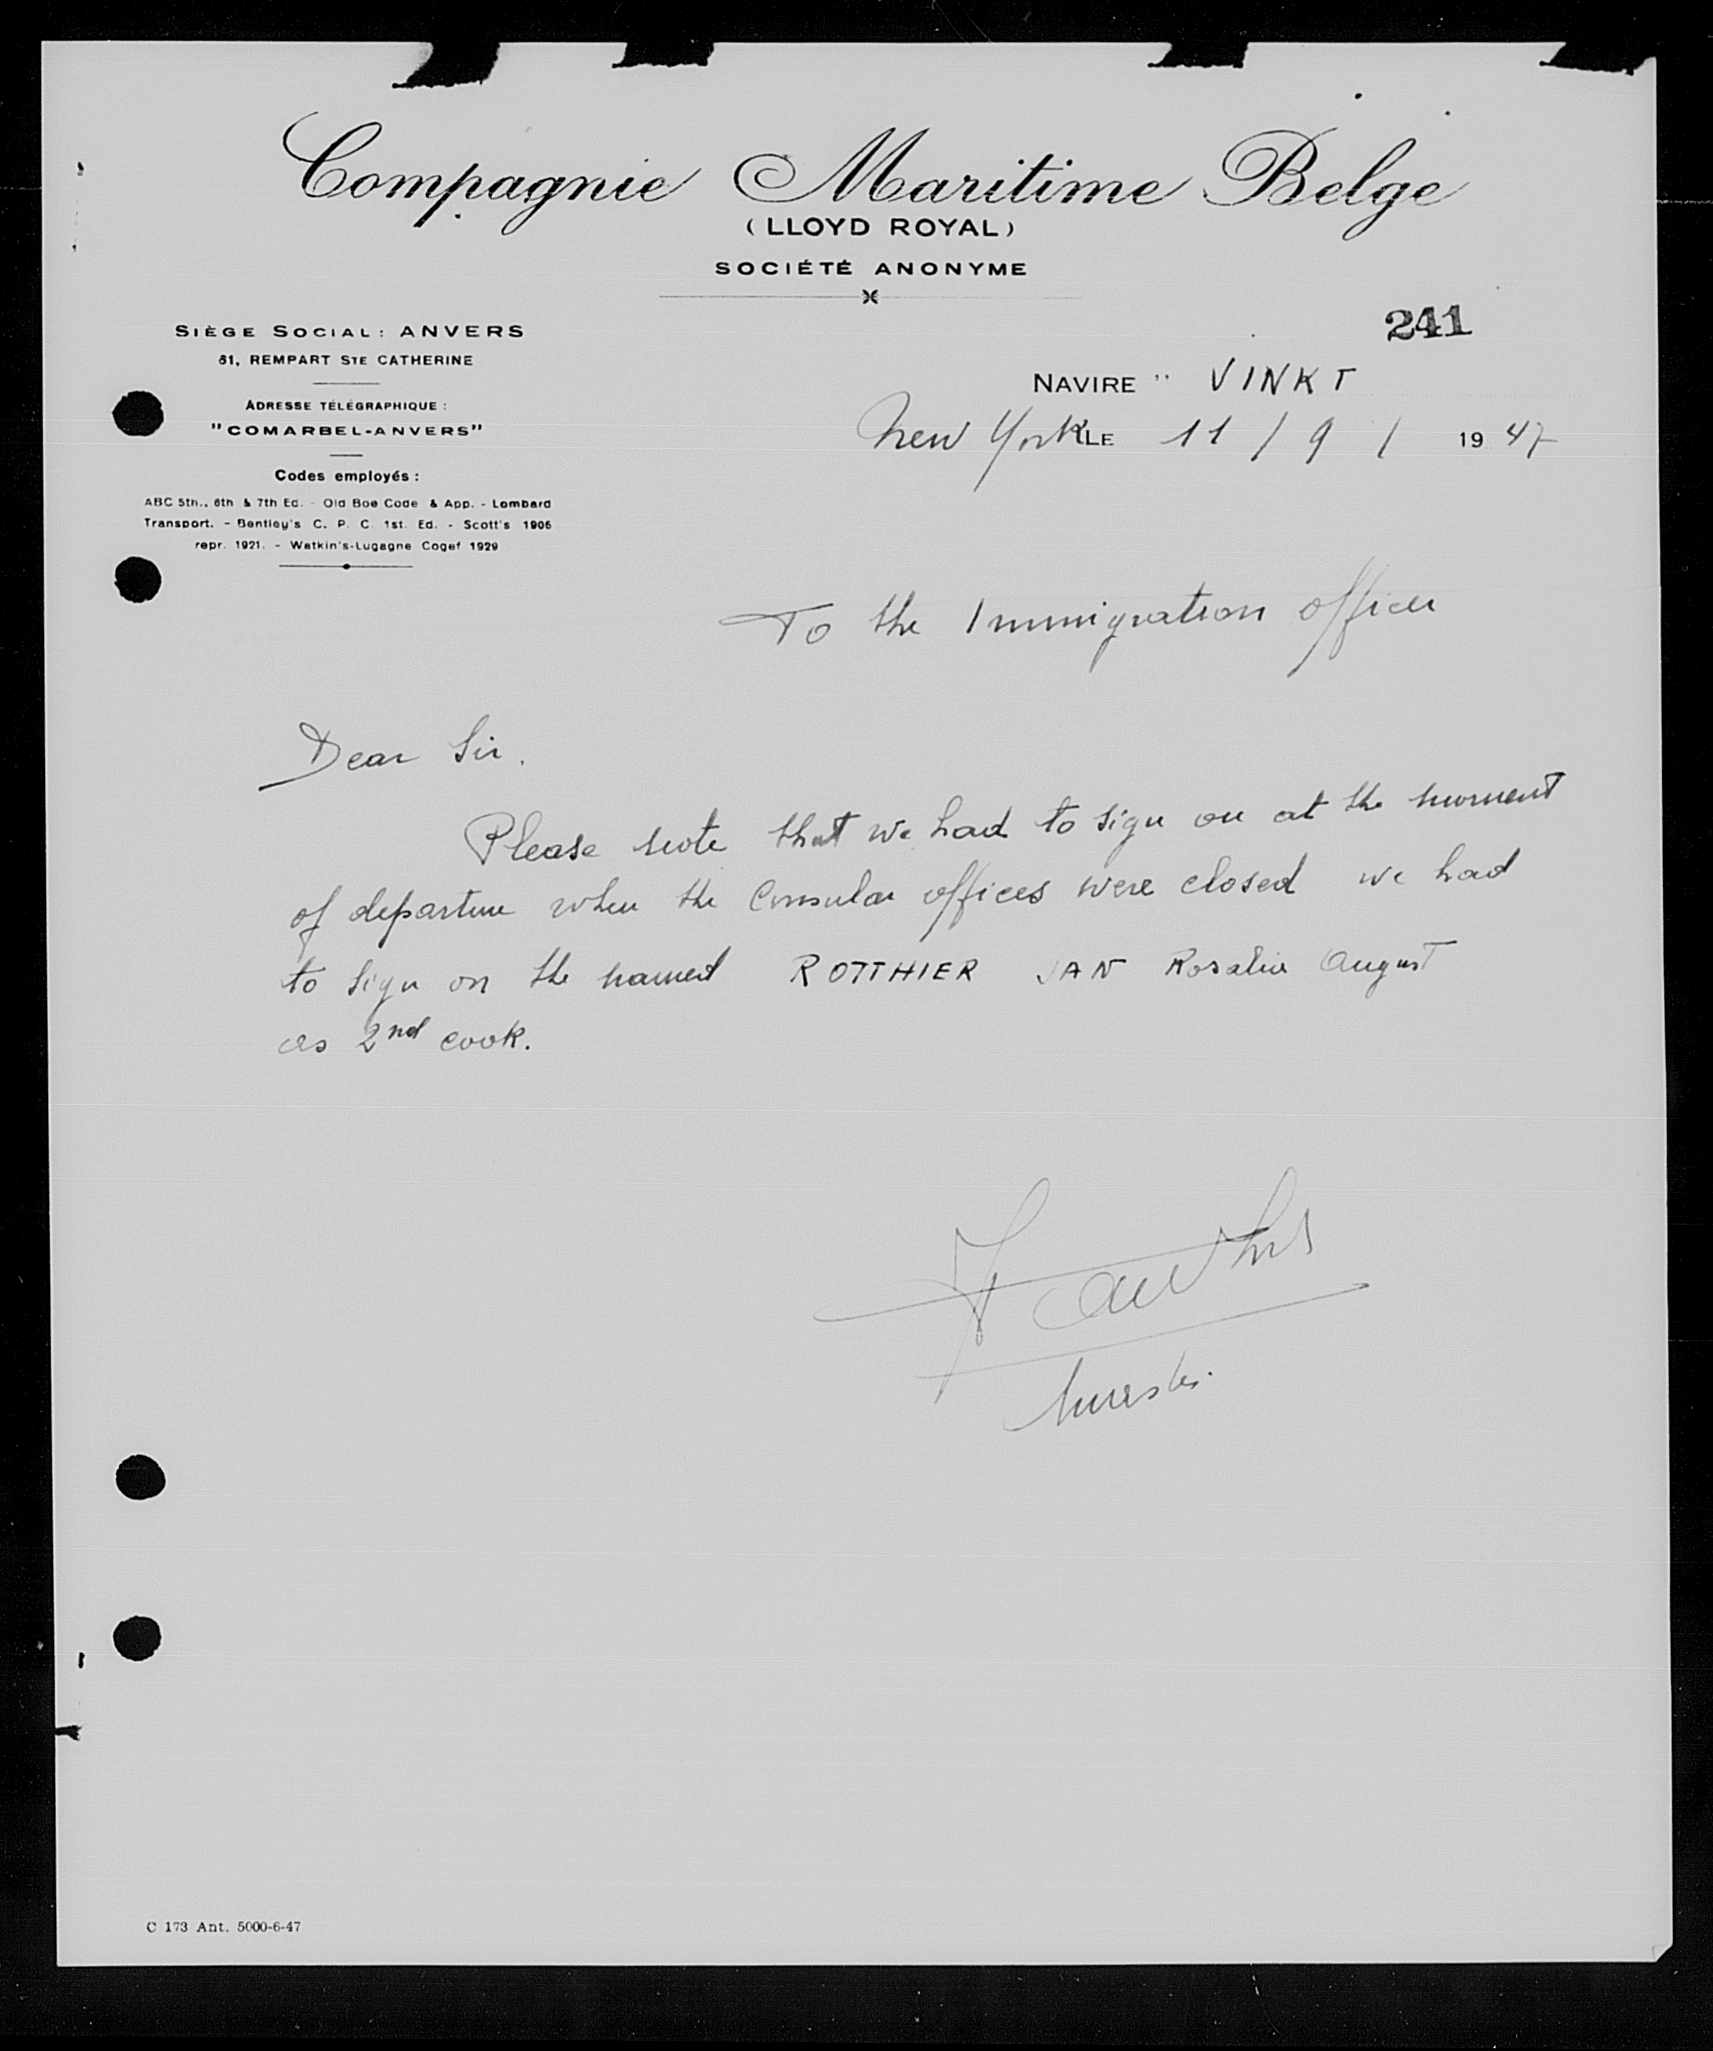 Compagnie Maritime Belge
(LLOYD ROYAL)
SOCIÉTÉ ANONYME
241
SIÈGE SOCIAL: ANVERS
61, REMPART STE CATHERINE
ADRESSE TÉLÉGRAPHIQUE :
"COMARBEL-ANVERS"
Codes employés :
ABC 5th., 6th & 7th Ed. - Old Boe Code & App. - Lombard
Transport. - Bentley's C. P. C. 1st. Ed. - Scott's 1906
repr. 1921. - Watkin's-Lugagne Cogef 1929
NAVIRE " VINKT
New York LE 11 / 9 / 19 47
To the Immigration officer
Dear Sir.
Please note that we had to sign on at the moment
of departure when the Consular offices were closed we had
to sign on the named ROTTHIER JAN Rosalia August
as 2nd cook.
C 173 Ant. 5000-6-47